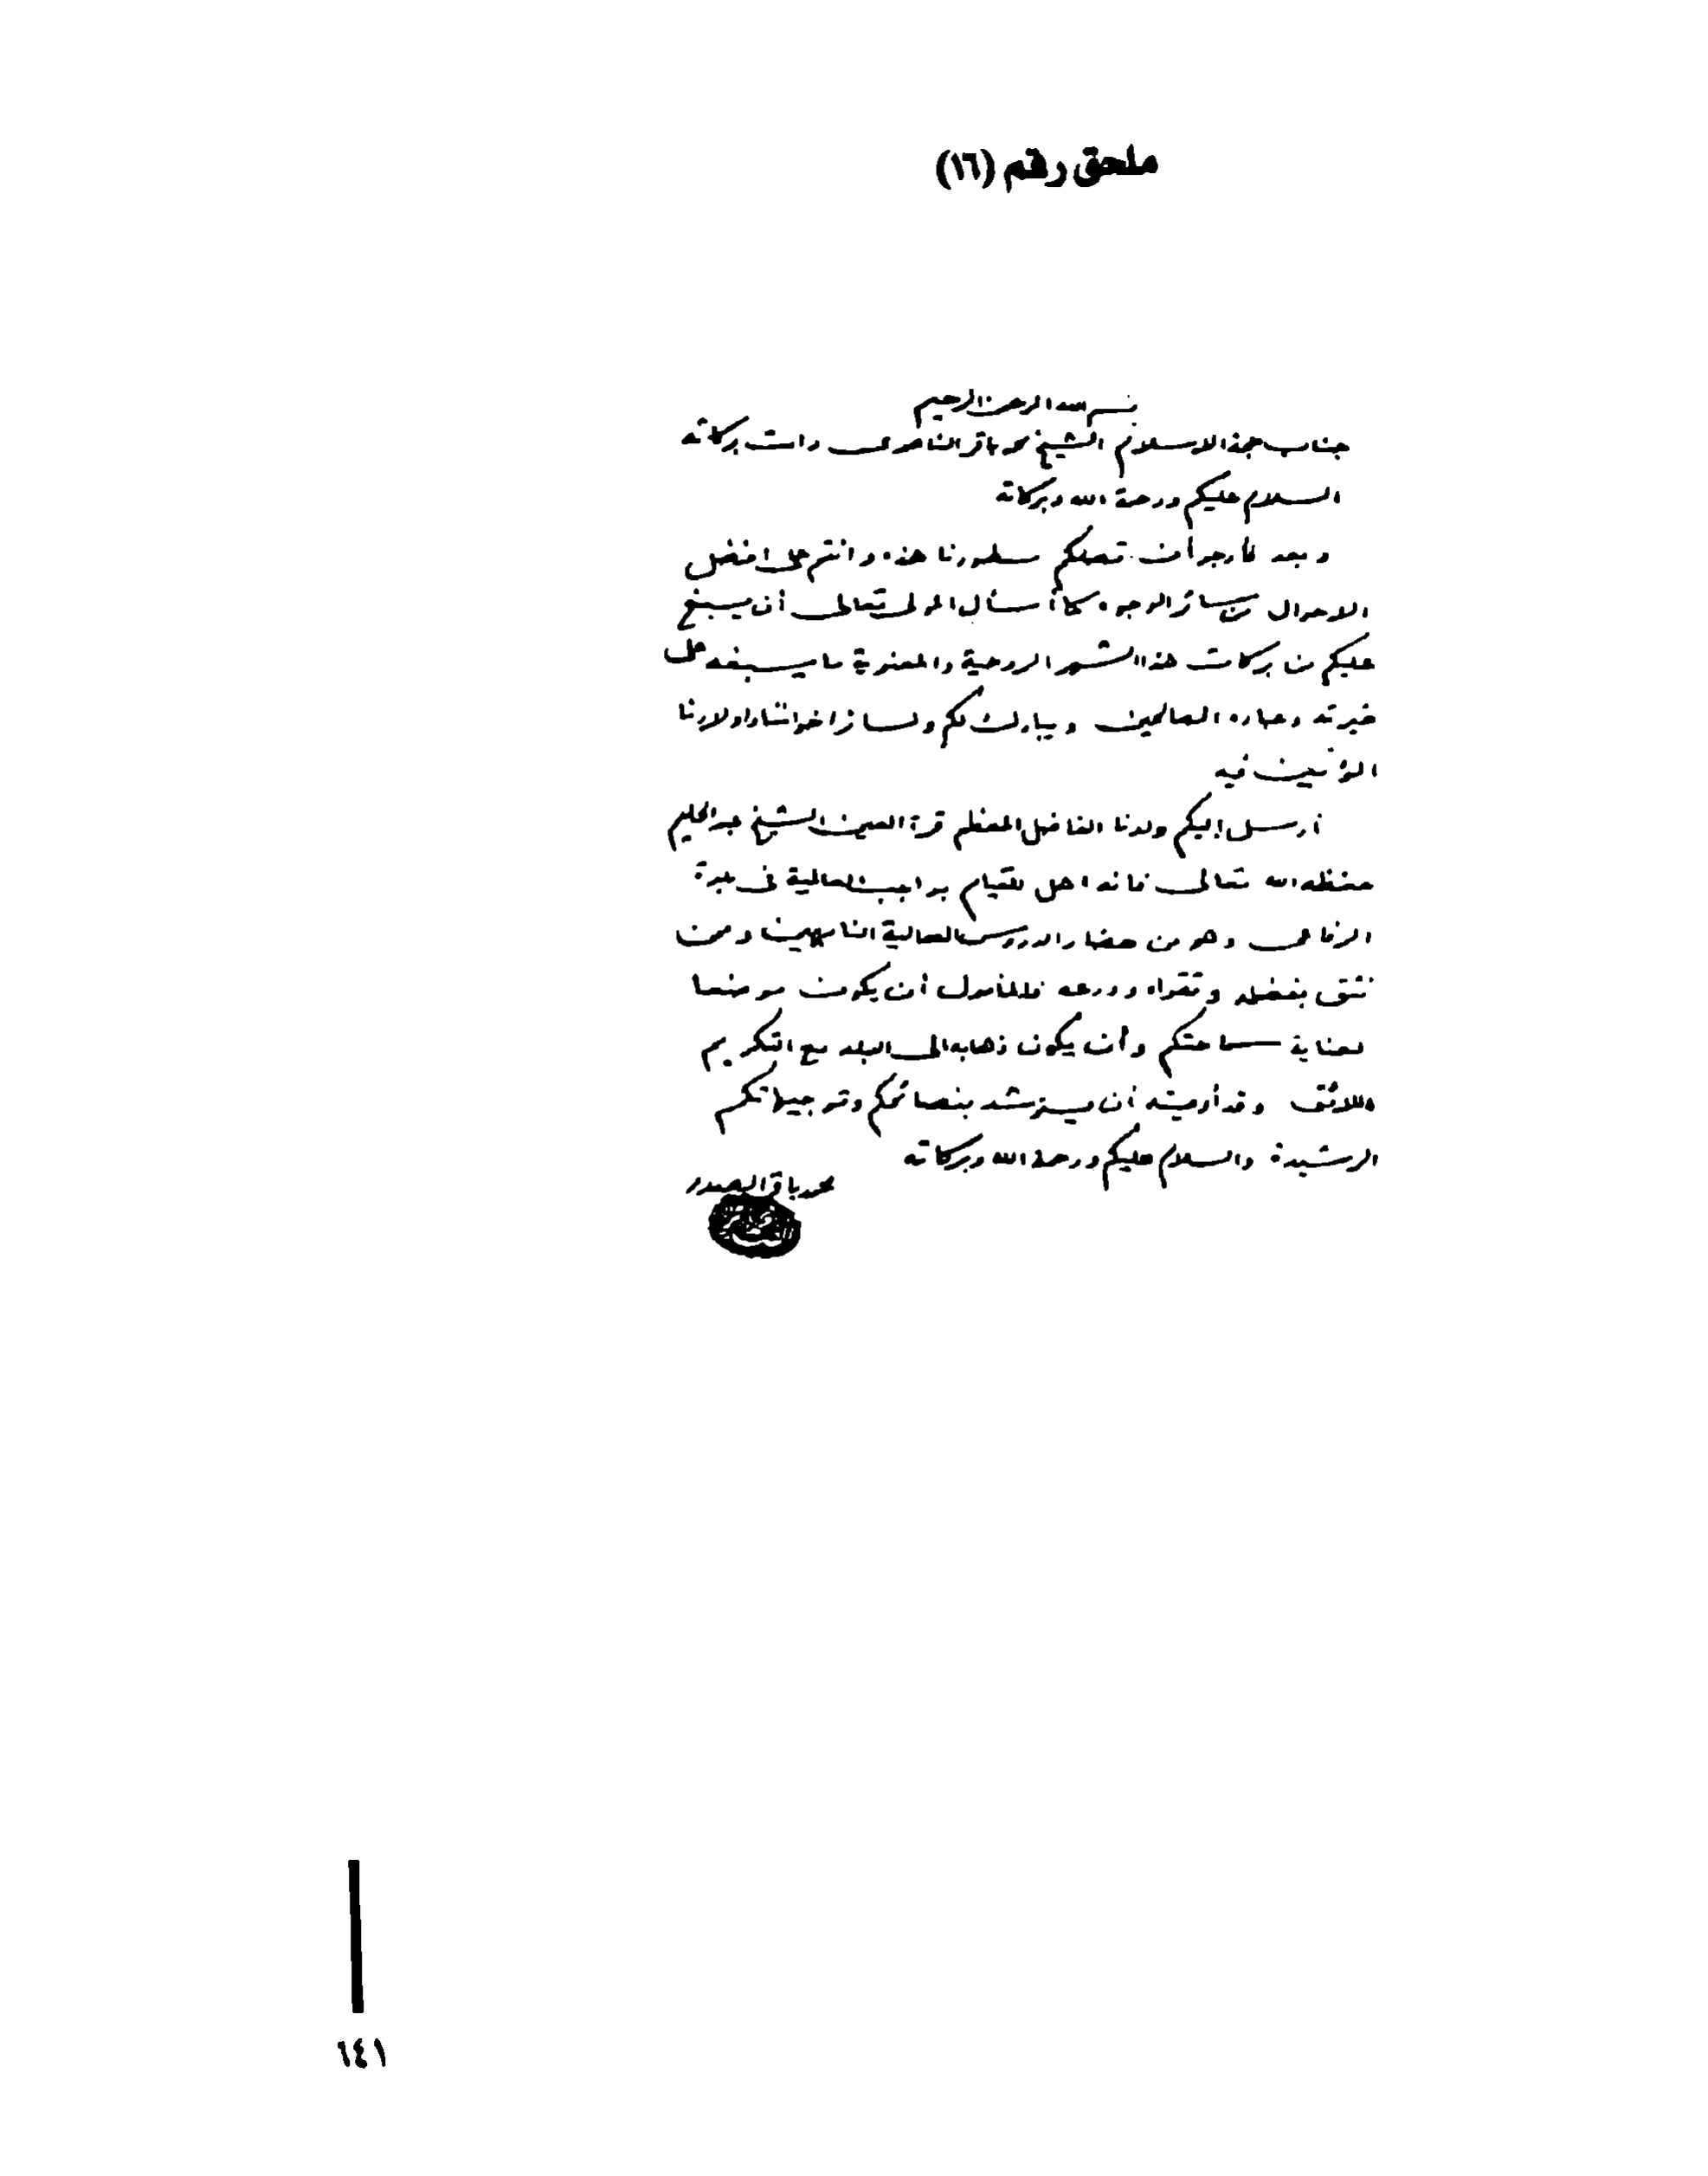 ملحق رقم (١٦)
بسم الله الرحمن الرحيم
جناب حجة الاسلام الشيخ محمد باقر الناصري دامت بركاته
السلام عليكم ورحمة الله وبركاته
وبعد فأرجو أن تصلكم سطورنا هذه وانتم على افضل
الاحوال من سائر الوجوه كما أسأل المولى تعالى أن يسبغ
عليكم من بركات هذا الشهر الروحية والمعنوية ما يسبغه على
خيرته وعباده الصالحين ويبارك لكم ولسائر اخواننا واولادنا
المؤمنين فيه
أرسل إليكم ولدنا الفاضل المعظم قرة العين الشيخ عبد الحليم
حفظه الله تعالى فانه اهل للقيام بواجب العالمية في بلدة
الرفاعي وهو من حضار الدروس العالية النابهين وممن
نثق بفضله وتقواه وورعه فالمأمول أن يكون موضعا
لعناية سماحتكم وأن يكون ذهابه الى البلد مع التكريم
اللائق وقد أوصيته أن يسترشد بنصائحكم وتوجيهاتكم
الرشيدة والسلام عليكم ورحمة الله وبركاته
محمد باقر الصدر
٦٤١